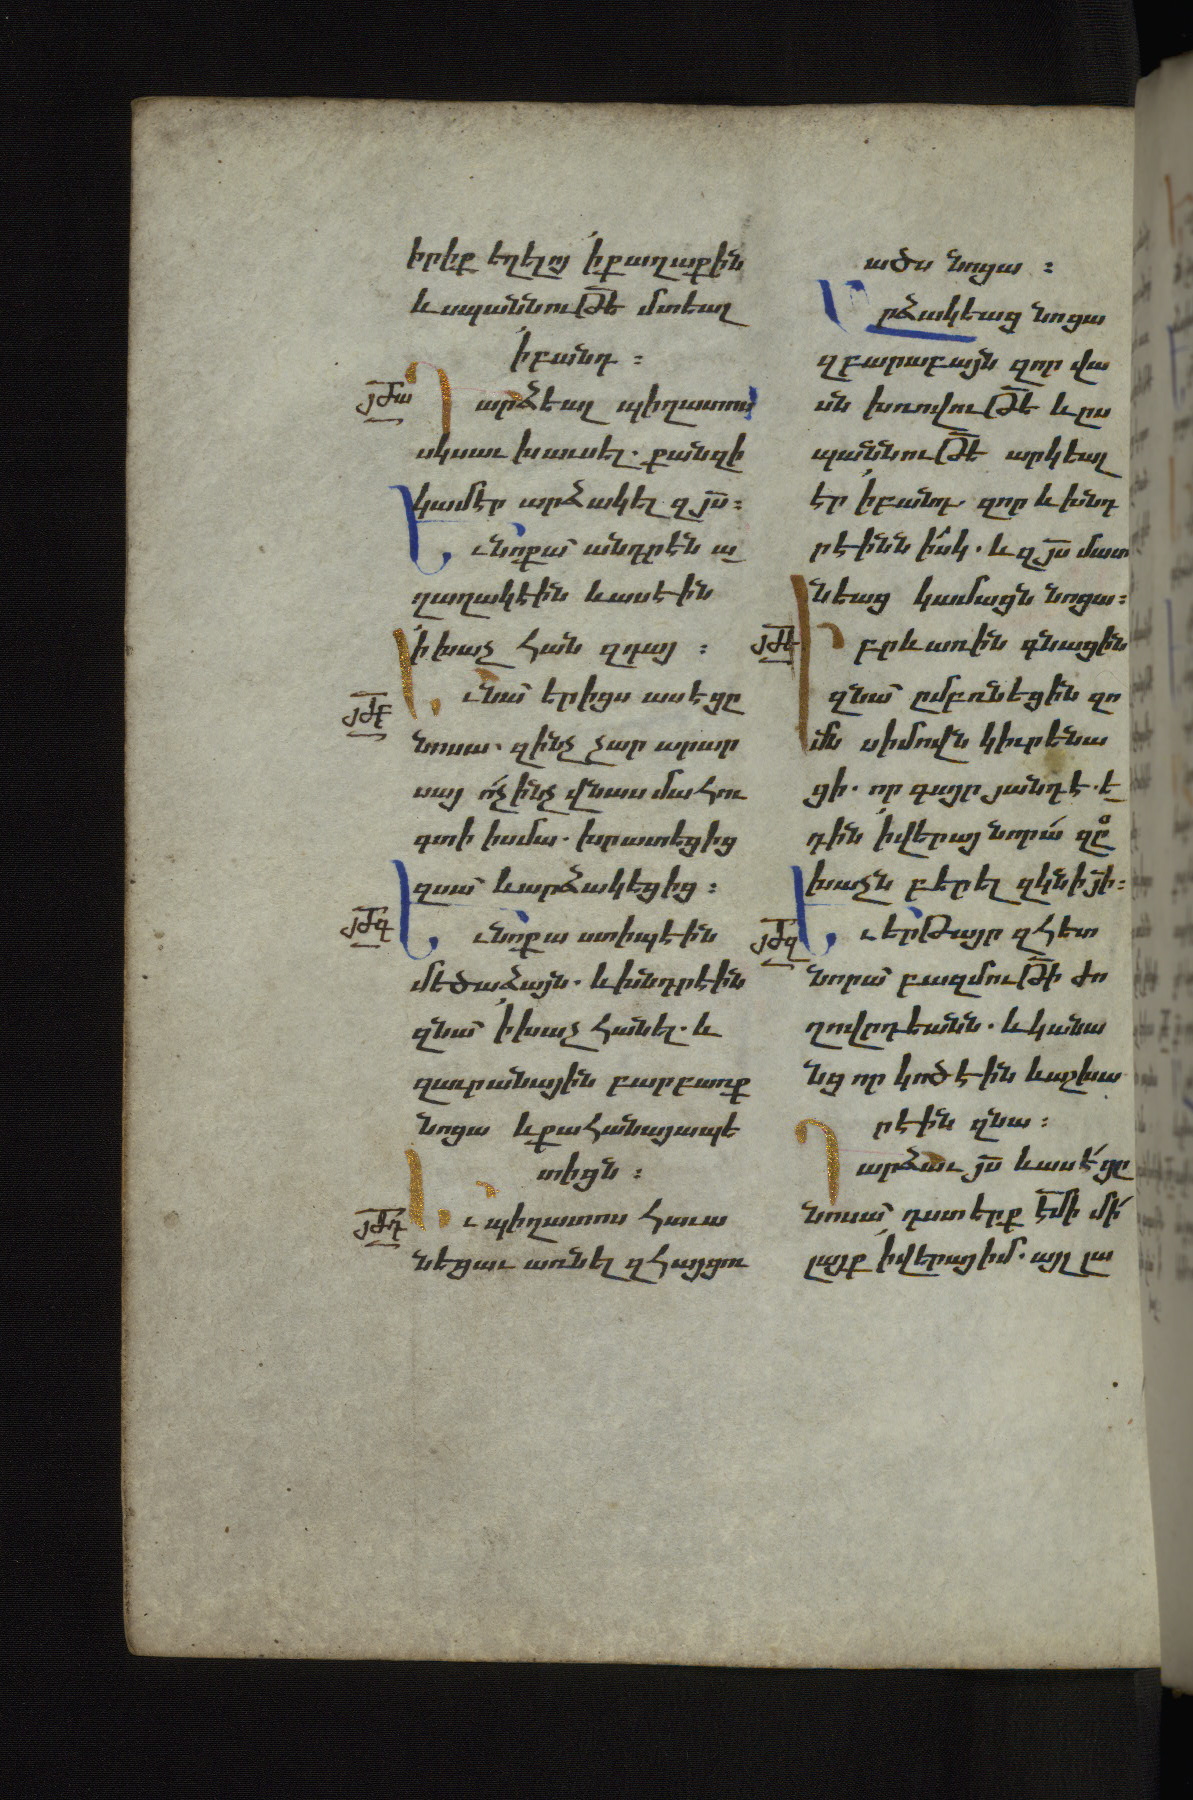 իրիք եղելոյ ՛ի քաղաքին
և սպաննութե մտեալ
՛ի բանդ ։
յժա
Դարձեալ պիղատոս
սկսաւ խաւսել. քանզի
կամէր արձակել զյս ։
Եւ նոքա անդրէն ա
ղաղակէին և ասէին
՛ի խաչ հան զդայ ։
յժբ
Եւ նա երիցս ասե ցը
նոսա. զինչ չար արար
սայ ոչինչ վնաս մահու
գտի ի սմա. խրատեցից
զսա և արձակեցից ։
յժգ
Եւ նոքա ստիպէին
մեծաձայն. և խնդրէին
զնա ՛ի խաչ հանել. և
զաւրանային բարբառք
նոցա և քահանայապե
տիցն ։
յժդ
Եւ պիղատոս հաւա
նեցաւ առնել զհայցու
ածս նոցա ։
Արձակեաց նոցա
զբարաբայն զոր վա
սն խռովութե և ըս
պաննութե արկեալ
էր ՛ի բանտ. զոր և խնդ
րէինն իսկ. և զյս մատ
նեաց կամացն նոցա ։
յժե
Իբրև առին գնացին
զնա ըմբռնեցին զո
մն սիմովն կիւրենա
ցի. որ գայր յանդէ. է
դին ՛ի վերայ նորա զը
խաչն բերել զկնի յի ։
յժզ
Եւ երթայր զհետ
նորա բազմութի ժո
ղովրդեանն. և կանա
նց որ կոծէին և աշխա
րէին զնա ։
Դարձաւ յս և ասե ցը
նոսա դստերք էմի մի
լայք ՛ի վերայ իմ. այլ լա